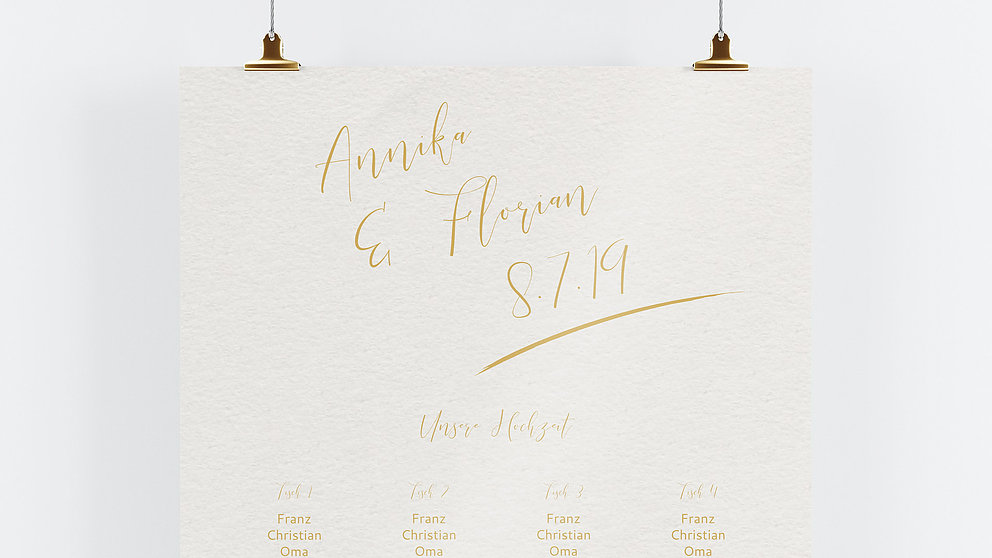 Annika
& Florian
8.7.19
Unsere Hochzeit
Tisch 1 Tisch 2 Tisch 3 Tisch 4
Franz Franz Franz Franz
Christian Christian Christian Christian
Oma Oma Oma Oma